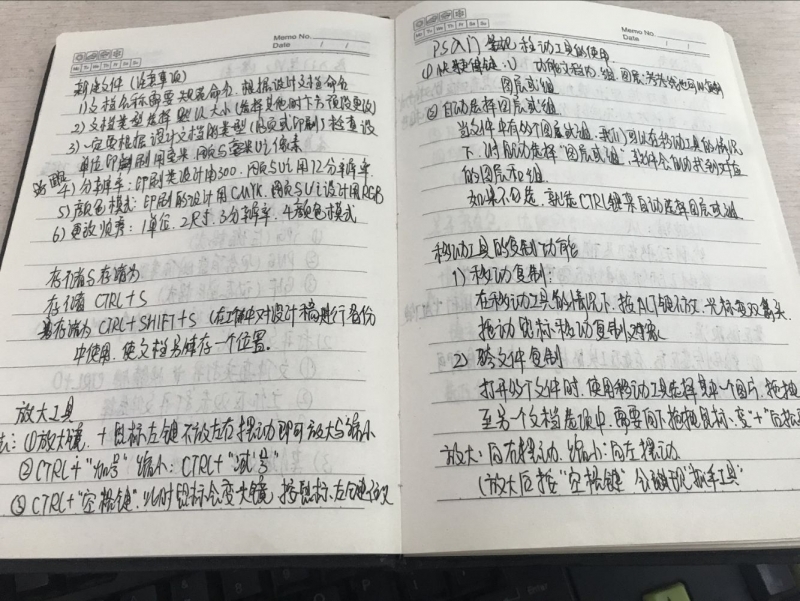 Memo No.
Date / /
Mo Tu We Th Fr Sa Su
新建文件（注意事项）
1）文档名称需要规范命名，根据设计文档命名
2）文档类型选择默认大小（选择其他时下方预设更改）
3）一定要根据设计文档的类型（网页或印刷）检查设
单位印刷用毫米，网页与UI像素
4）分辨率：印刷类设计用300，网页与UI用72分辨率
5）颜色模式：印刷的设计用CMYK，网页与UI设计用RGB
6）更改顺序：1单位，2尺寸，3分辨率，4颜色模式
存储与存储为
存储 CTRL+S
存储为 CTRL+SHIFT+S（在工作中对设计稿进行备份
中使用，使文档另储存一个位置。
放大工具
①放大镜，+鼠标左键不放左右摆动即可放大与缩小
②CTRL+“加号” 缩小：CTRL+“减号”
③CTRL+“空格键”，此时鼠标会变大镜，按鼠标左键
Memo No.
Date / /
Mo Tu We Th Fr Sa Su
PS入门 常规移动工具的使用
①快捷键：V
图层或组
②自动选择图层或组
当文件中有多个图层或组，我们可以在移动工具的情况
下，对自动选择“图层或组”，软件会自动找到对应
的图层和组
如果不勾选，就按CTRL键来自动选择图层或组
移动工具的复制功能
1）移动复制：
在移动工具的情况下，按ALT键不放，光标为双箭头，
拖动鼠标移动复制对象
2）跨文件复制
打开多个文件时，使用移动工具选择其中一个图片，拖拽
至另一个文档选项中，需要向下拖拽鼠标，变“+”后松
放大：向右摆动，缩小：向左摆动
（放大后按“空格键”会出现“抓手工具”